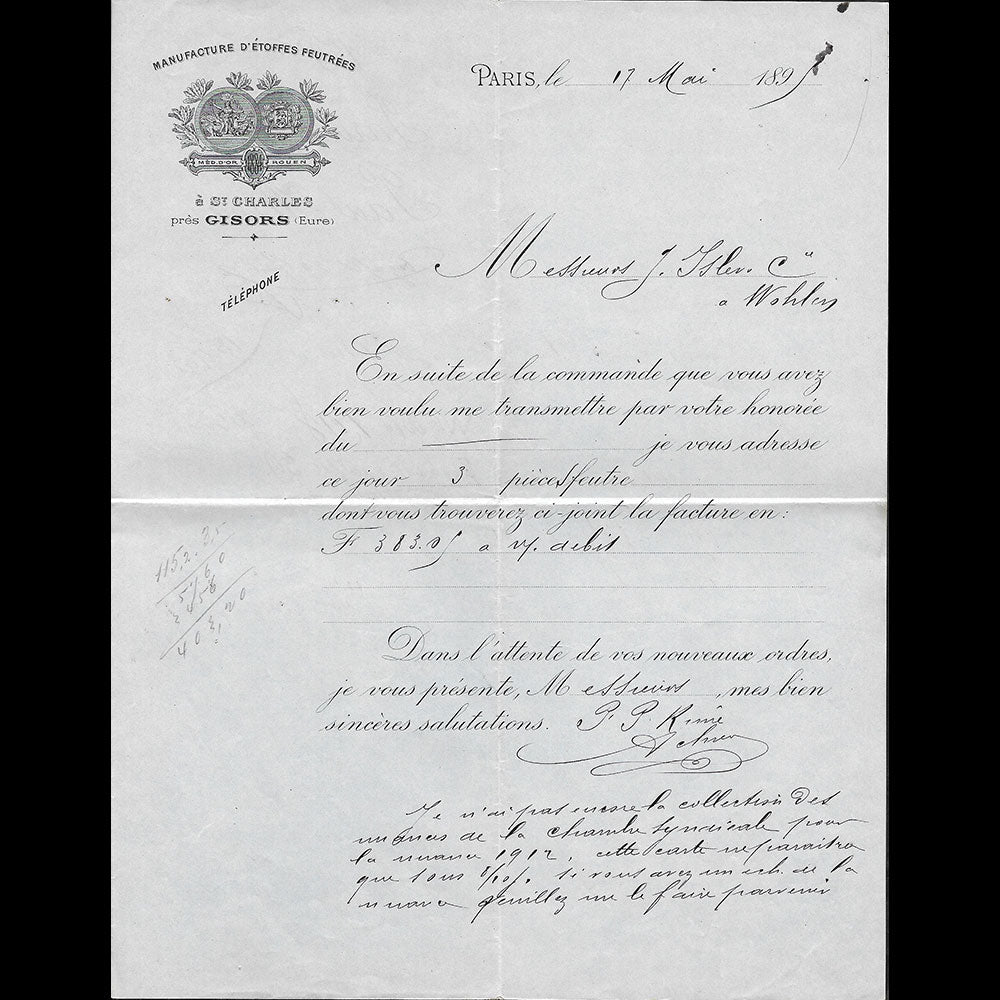 MANUFACTURE D'ÉTOFFES FEUTRÉES
MÉD. D'OR ROUEN
à St. CHARLES
près GISORS (Eure)
TÉLÉPHONE
PARIS, le 17 Mai 1895
Messieurs J. Isler. Cie
a Wohlen
En suite de la commande que vous avez
bien voulu me transmettre par votre honorée
du je vous adresse
ce jour 3 pièces feutre
dont vous trouverez ci-joint la facture en:
F 383.05 a v/. debit
115,2.25
5760
403,20
Dans l'attente de vos nouveaux ordres,
je vous présente, Messieurs, mes bien
sincères salutations. P. P.
Je n'ai pas encore la collection des
nuances de la chambre Syndicale pour
la nuance 1912, cette carte ne paraitra
que sous. Si vous avez un ech. de la
nuance veuillez me le faire parvenir